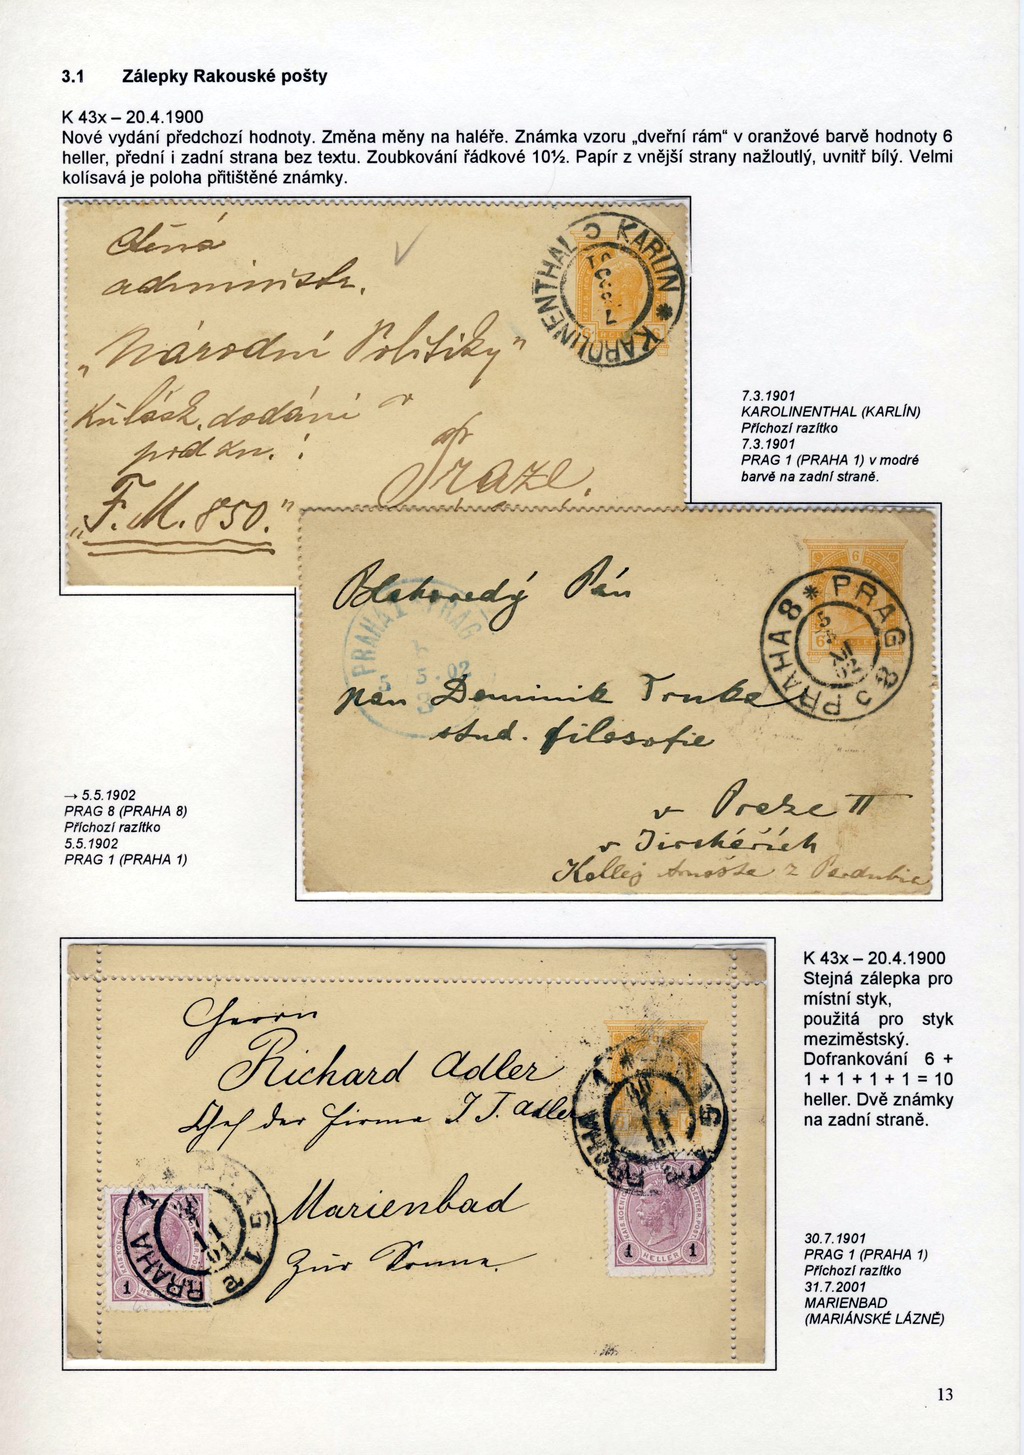 3.1 Zálepky Rakouské pošty
K 43x – 20.4.1900
Nové vydání předchozí hodnoty. Změna měny na haléře. Známka vzoru „dveřní rám“ v oranžové barvě hodnoty 6
heller, přední i zadní strana bez textu. Zoubkování řádkové 10½. Papír z vnější strany nažloutlý, uvnitř bílý. Velmi
kolísavá je poloha přitištěné známky.
Ctěná
administr.
„Národní Politiky“
dodání
pod zn. :
„F. M. 850.“
Praze.
KAROLINENTHAL KARLIN * KAROLINENTHAL
7.3.1901
KAROLINENTHAL (KARLÍN)
Příchozí razítko
7.3.1901
PRAG 1 (PRAHA 1) v modré
barvě na zadní straně.
Blahorodý Pán
pan Dominik Trnka
stud. filosofie
v Praze II
v Jirchářích
Kollej Arnošta z Pardubic
PRAG 8 PRAHA 8
5 02
6
PRAHA PRAG
5 5.02
→ 5.5.1902
PRAG 8 (PRAHA 8)
Příchozí razítko
5.5.1902
PRAG 1 (PRAHA 1)
Herrn
Richard Adler
Chef der Firma J. J. Adler
Marienbad
zur Sonne.
PRAG 1 PRAHA 1
PRAG 1 PRAHA 1
1 1
HELLER
1
K 43x – 20.4.1900
Stejná zálepka pro
místní styk,
použitá pro styk
meziměstský.
Dofrankování 6 +
1 + 1 + 1 + 1 = 10
heller. Dvě známky
na zadní straně.
30.7.1901
PRAG 1 (PRAHA 1)
Příchozí razítko
31.7.2001
MARIENBAD
(MARIÁNSKÉ LÁZNĚ)
13